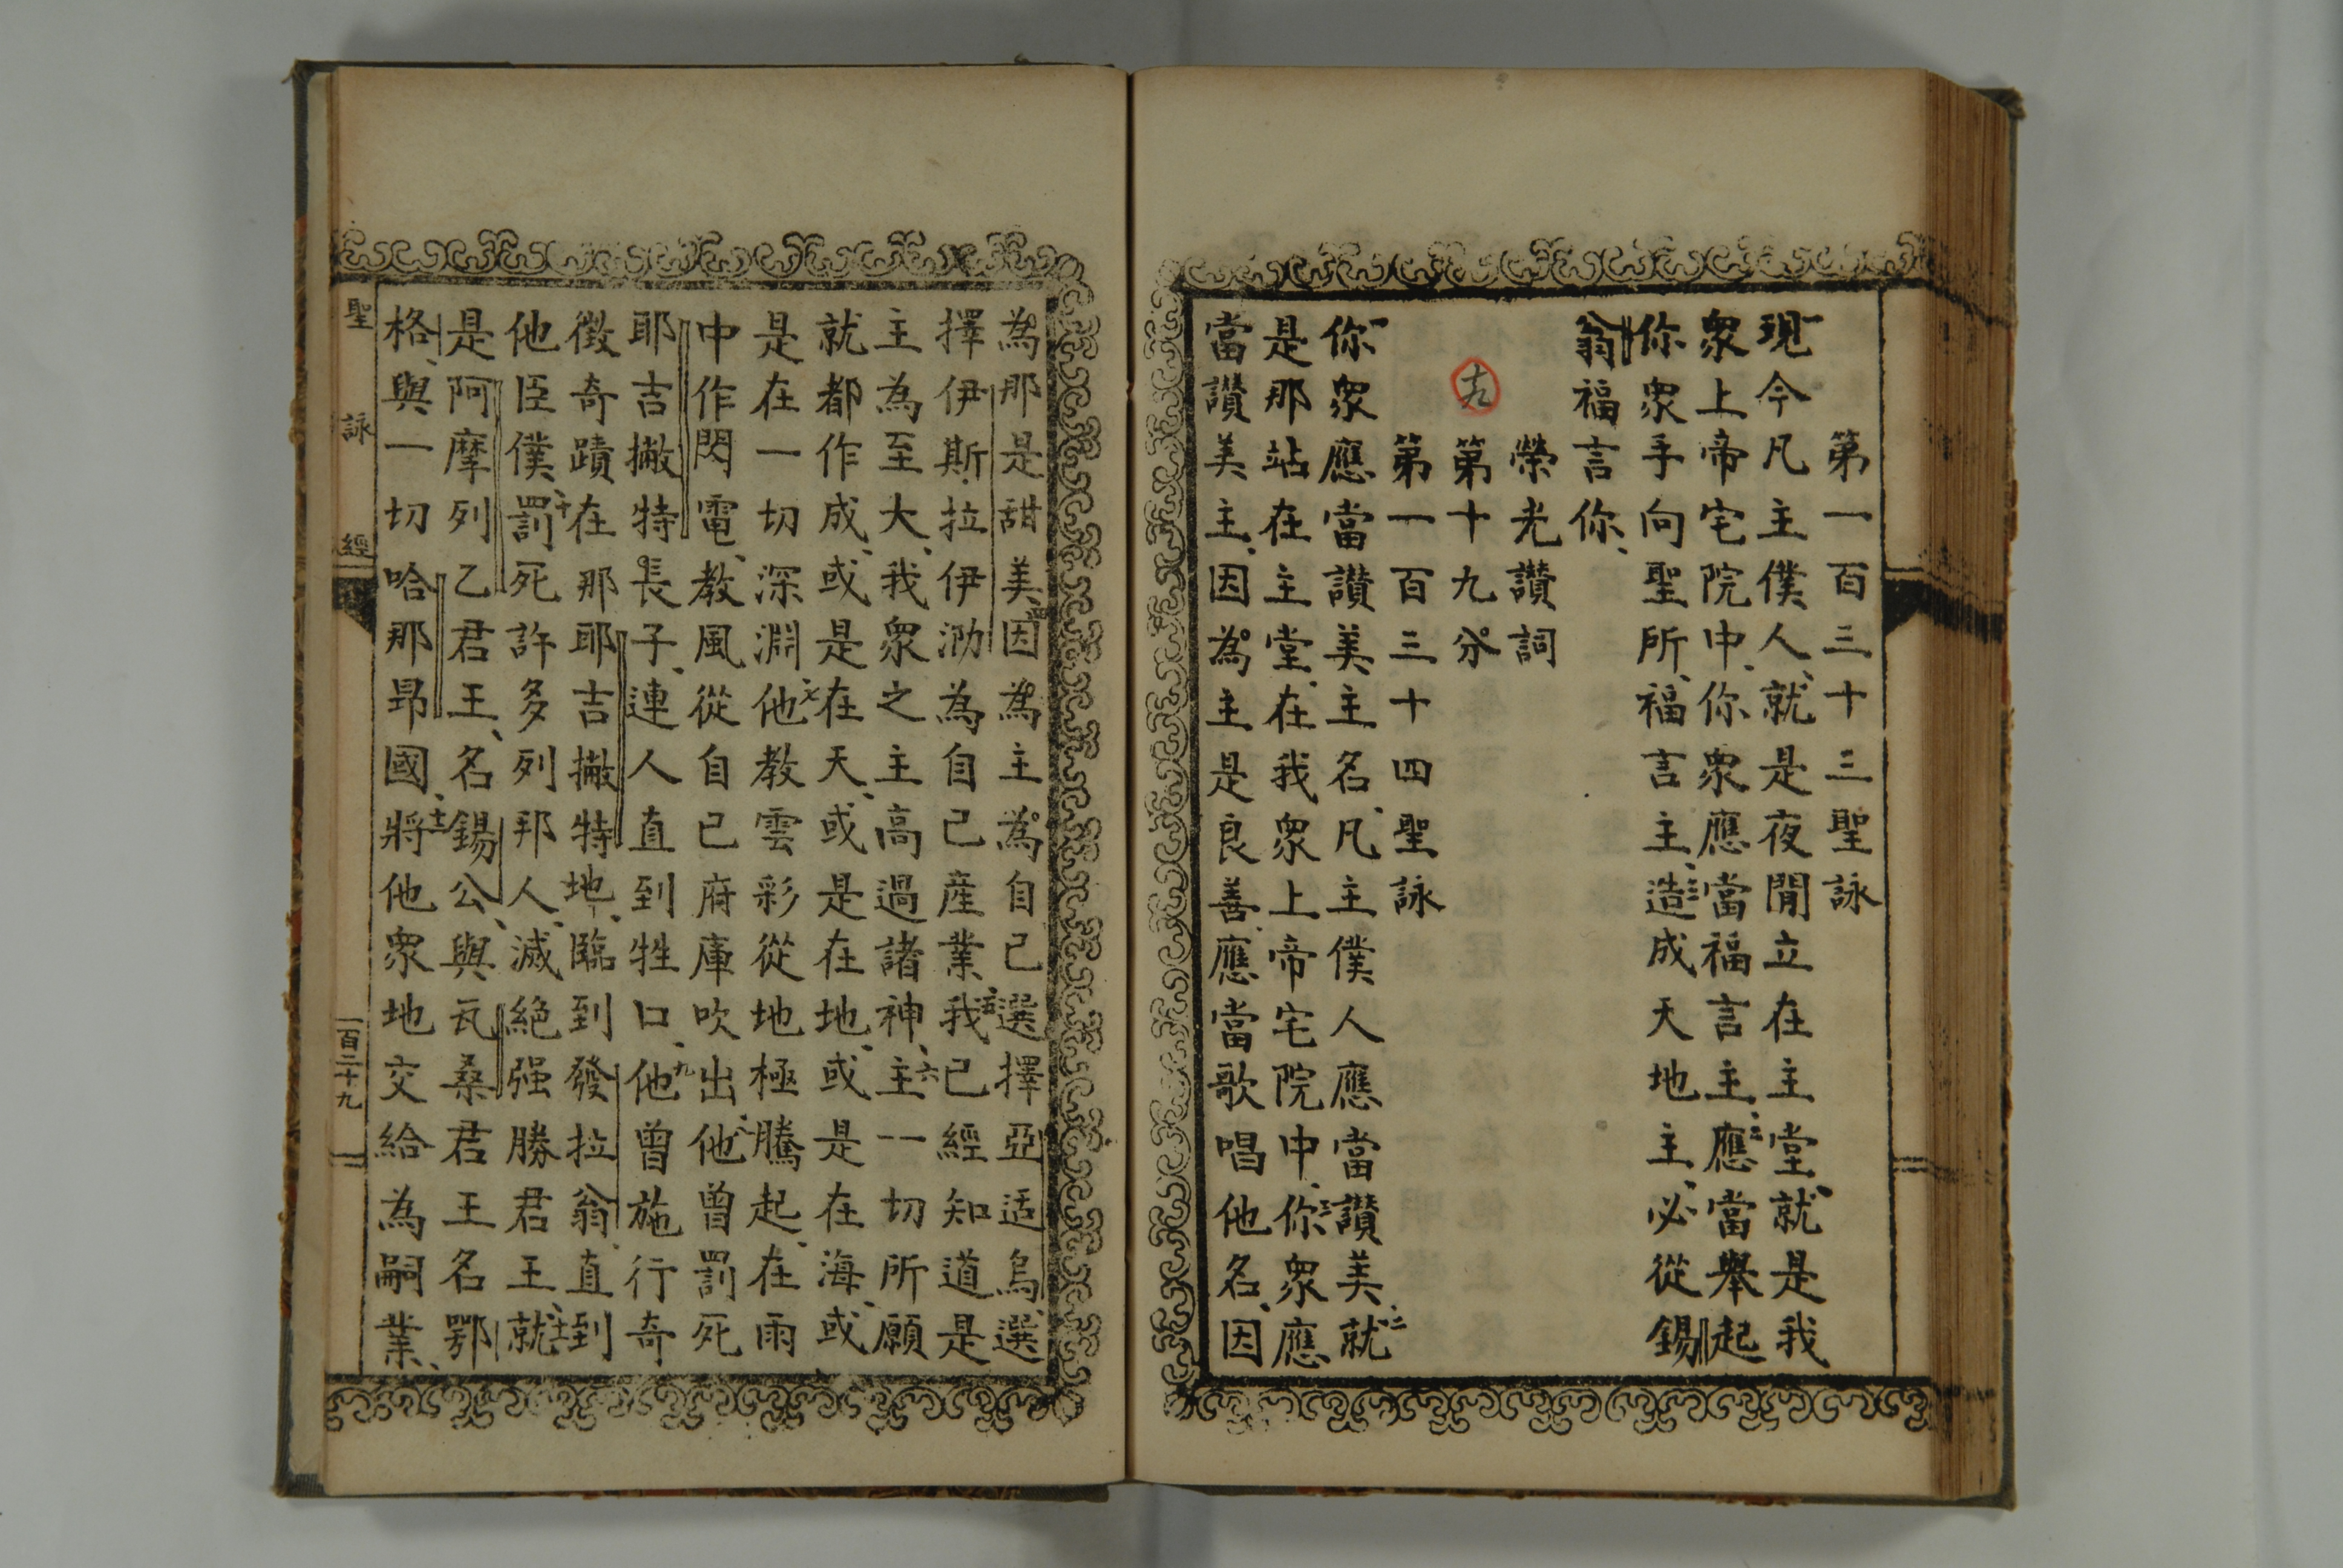 第一百三十三聖詠
一現今凡主僕人、就是夜閒立在主堂、就是我
衆上帝宅院中、你衆應當福言主、二應當舉起
你衆手向聖所、福言主、三造成天地主、必從錫
翁福言你、
榮光讚詞
十九
第十九分
第一百三十四聖詠
一你衆應當讚美主名、凡主僕人應當讚美、二就
是那站在主堂、在我衆上帝宅院中、三你衆應
當讚美主、因為主是良善、應當歌唱他名、因
為那是甜美、四因為主為自己選擇亞适烏、選
擇伊斯拉伊泐為自己産業、五我已經知道是
主為至大、我衆之主高過諸神、六主一切所願
就都作成、或是在天、或是在地、或是在海、或
是在一切深淵、七他教雲彩從地極騰起、在雨
中作閃電、教風從自己府庫吹出、八他曾罰死
耶吉撇特長子、連人直到牲口、九他曾施行奇
徵奇蹟在那耶吉撇特地、臨到發拉翁、直到
他臣僕、十罰死許多列邦人、滅絕强勝君王、十一就
是阿摩列乙君王、名錫公、與瓦桑君王名鄂
格、與一切哈那昻國、十二將他衆地交給為嗣業、
聖詠經
一百二十九